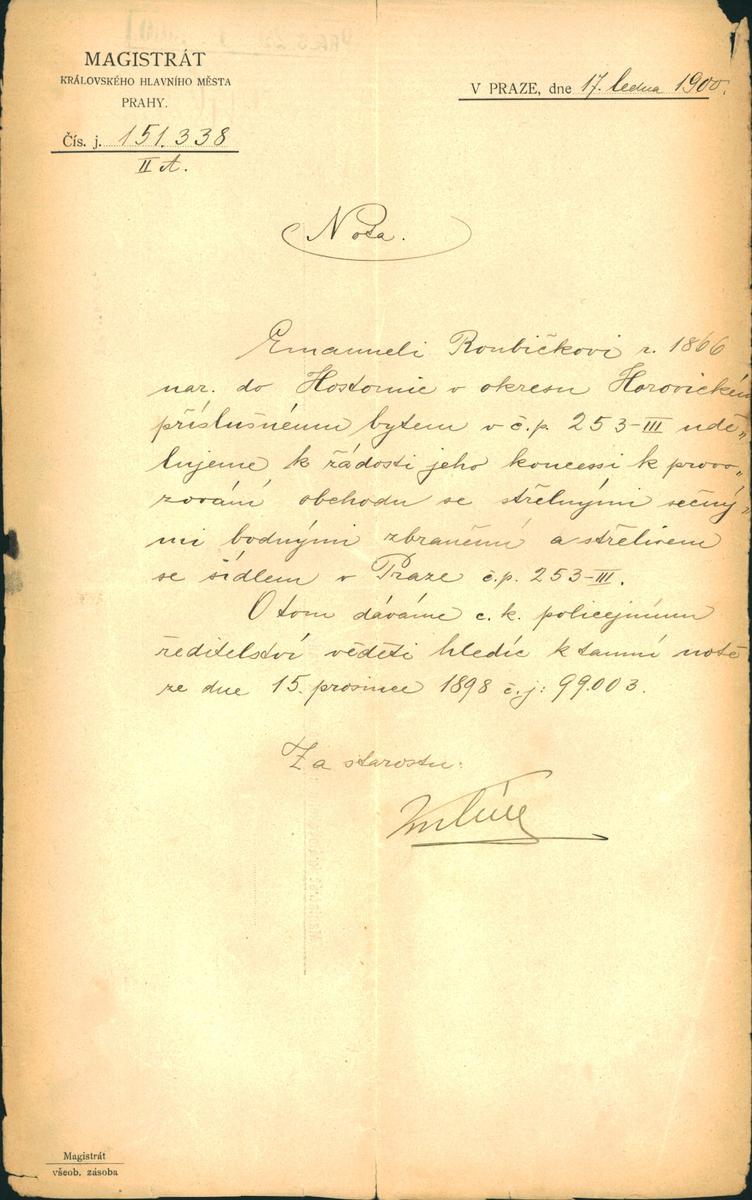 MAGISTRÁT
KRÁLOVSKÉHO HLAVNÍHO MĚSTA
PRAHY.
V PRAZE, dne 17. ledna 1900.
Čís. j. 151.338
II A.
Nota.
Emanueli Roubíčkovi r. 1866
nar. do Hostomic v okresu Horovickém
příslušnému bytem v č.p. 253-III udě„
lujeme k řádosti jeho koncessi k provo„
zování obchodu se střelnými sečný„
mi bodnými zbraněmi a střelivem
se sídlem v Praze č.p. 253-III.
O tom dáváme c. k. policejnímu
ředitelství věděti hledíc k tamní notě
ze dne 15. prosince 1898 č.j: 99.003.
Za starostu:
Magistrát
všeob. zásoba